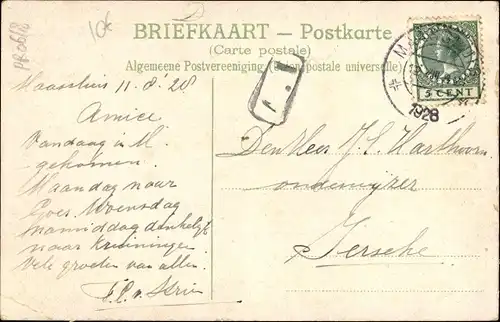 BRIEFKAART — Postkarte
(Carte postale)
Algemeene Postvereeniging (Union postale universelle)
PR06/8
10c
5 CENT
1928
1
Maassluis 11.8.'28
Amice
Vandaag in M.
gekomen.
Maandag naar
Goes. Woensdag
namiddag denkelijk
naar Kruiningen
Vele groeten van allen.
Den Heer J. S. Harthoorn
onderwijzer
Ierseke